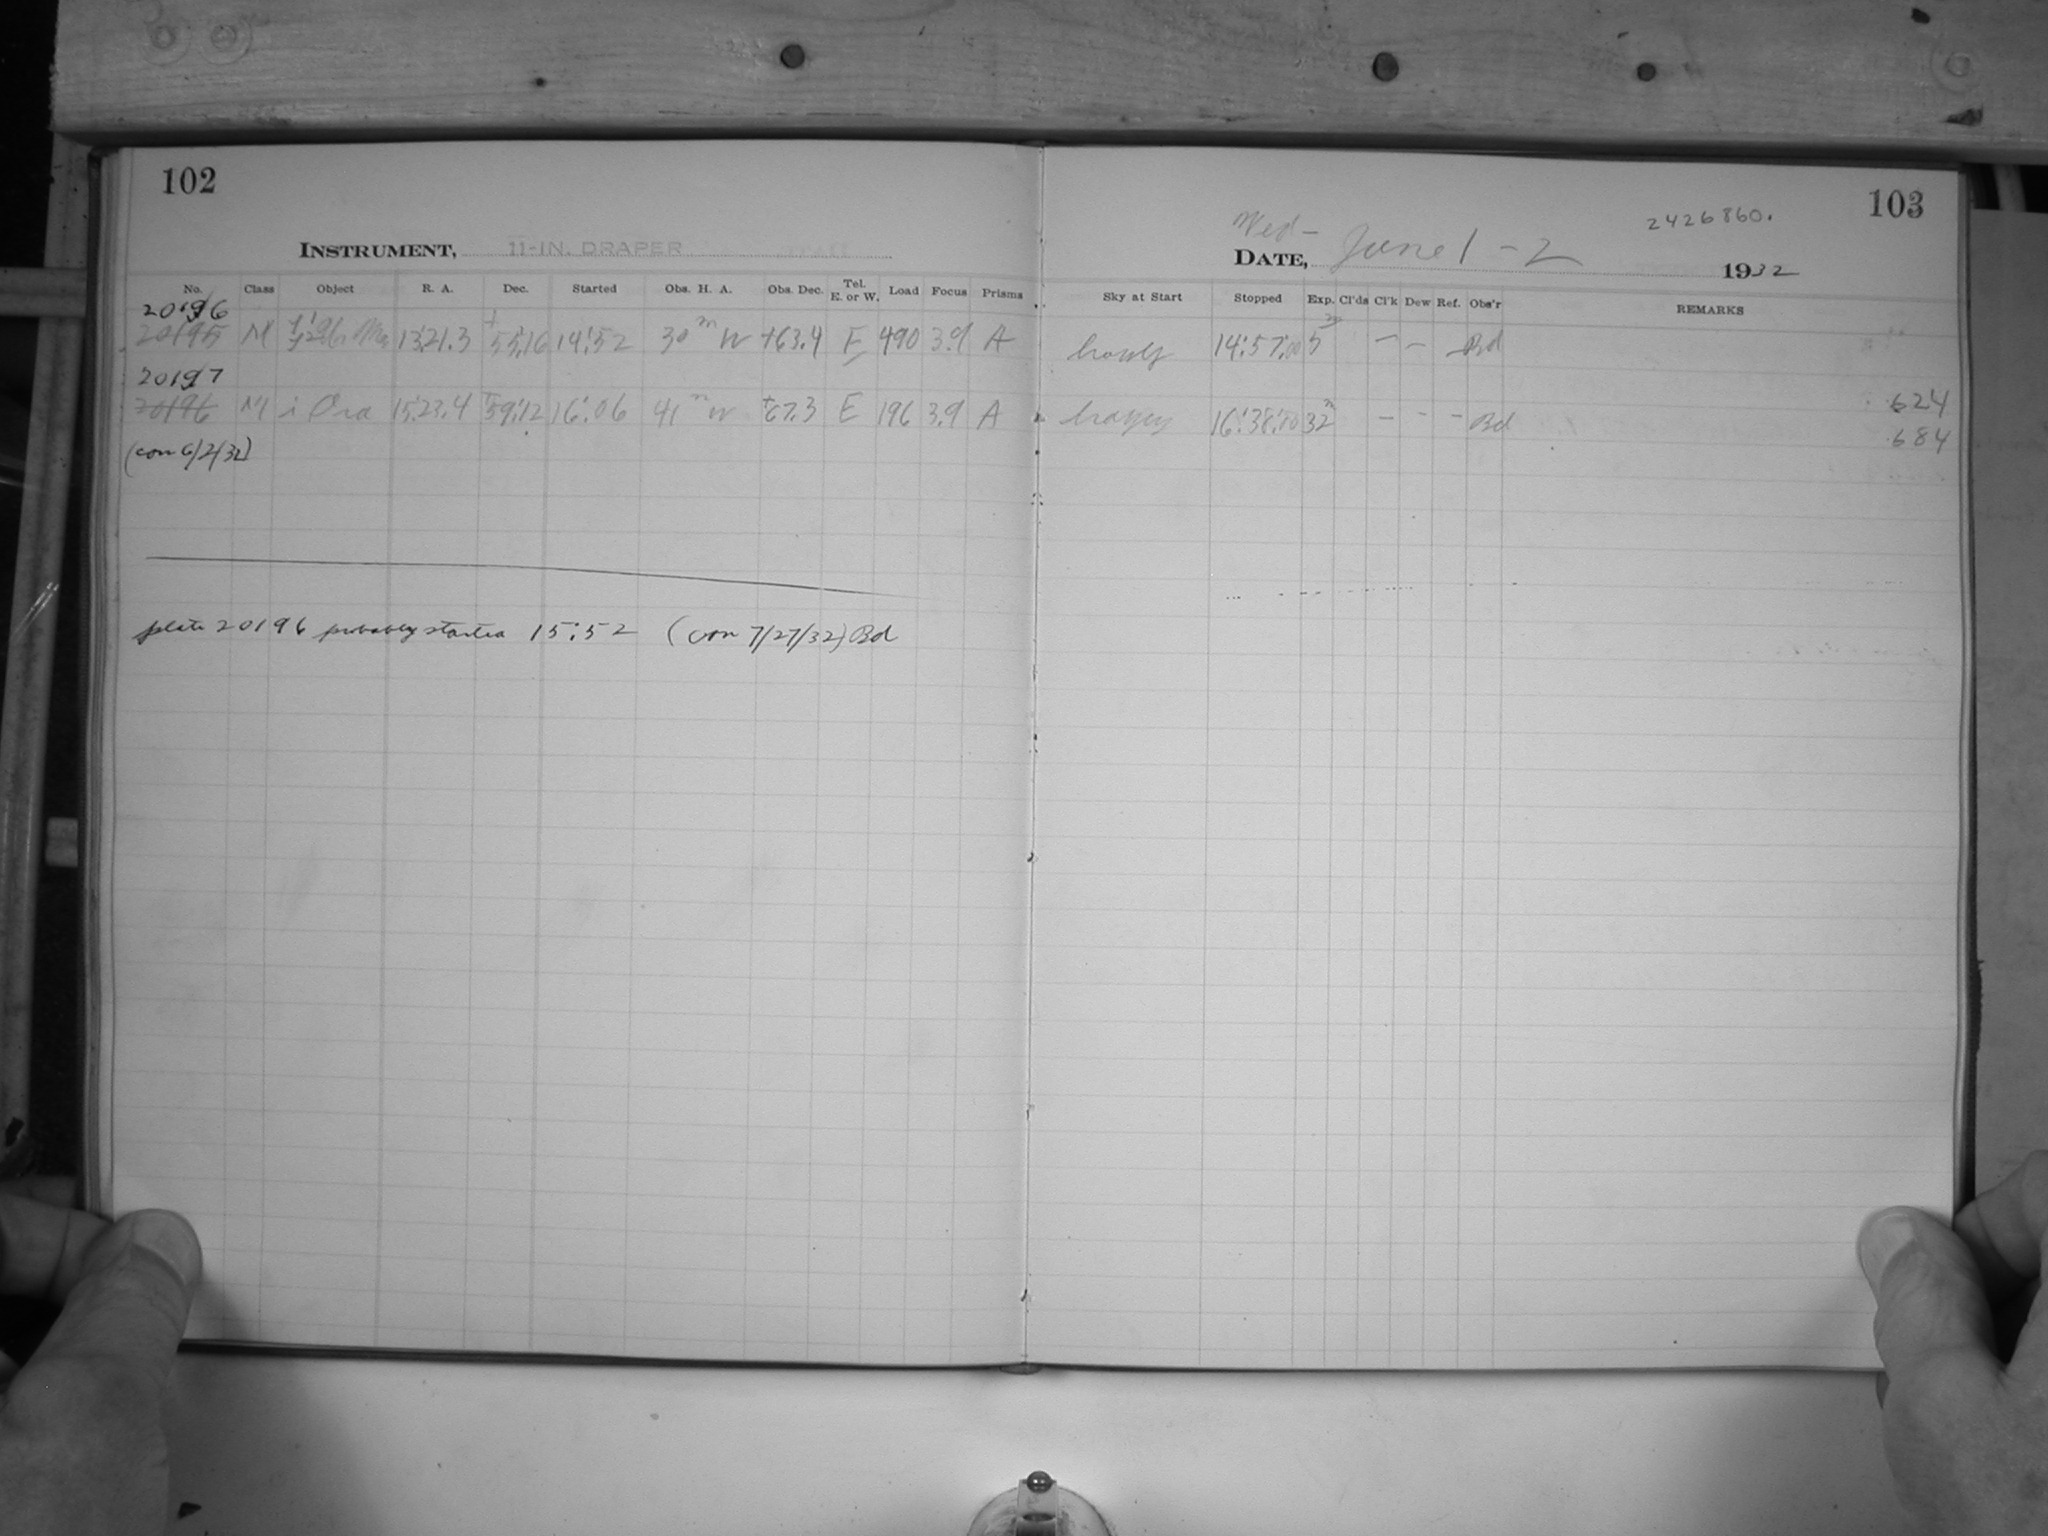 102
INSTRUMENT, 11-IN. DRAPER
No. Class Object R. A. Dec. Started Obs. H. A. Obs. Dec. Tel. E. or W. Load Focus Prisms
20196
20195 M 13:21.3 +55:16 14:52 30m W +63.4 E 490 3.9 A
20197
20196 M i Dra 15:23.4 +59:12 16:06 41m W +67.3 E 196 3.9 A
(corr 6/2/32)
plate 20196 probably started 15:52 (corr 7/27/32) Bd
103
2426860.
Wed-
DATE, June 1-2 1932
Sky at Start Stopped Exp. Cl'ds Cl'k Dew Ref. Obs'r REMARKS
14:57:00 5m — — — Bd
hazy 16:38:00 32m — — — Bd
.624
.684